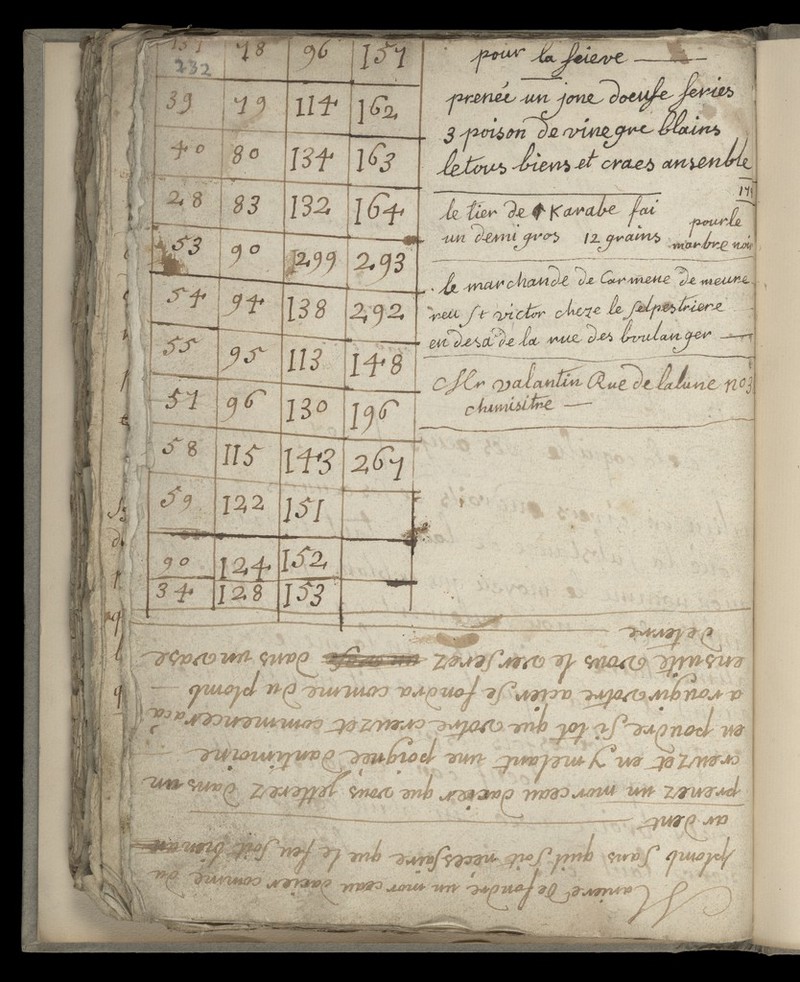 78 96 157
232
39 79 114 162
40 80 134 163
28 83 132 164
53 90 299 293
54 94 138 292
55 95 113 148
57 96 130 196
58 115 143 267
59 122 151
90 124 152
34 128 153
pour la feieve
prenéé un jone doeufe feries
3 poison de vinegre blains
letous biens et craes ansenble
le tier de Karabe fai
un demi gros 12 grains
pour le
marbre noir
le marchande de Carmene de meure
reu st victor cheze le selpestriere
en desa de la rue des boulanger
Mr valantin Rue de lalune no 3
chimisitre
Maniere de fondre un morceau dacier comme du
plomb sans quil soit necessaire que le feu soit bien
ardent
prenez un morceau dacier que vous jetterez dans un
creuzet en y melant une poignée dantimoine
en poudre si tot que votre creuzet commencera a
a rougir votre acier se fondra comme du plomb
ensuite vous le verserez dans un vase
de terre